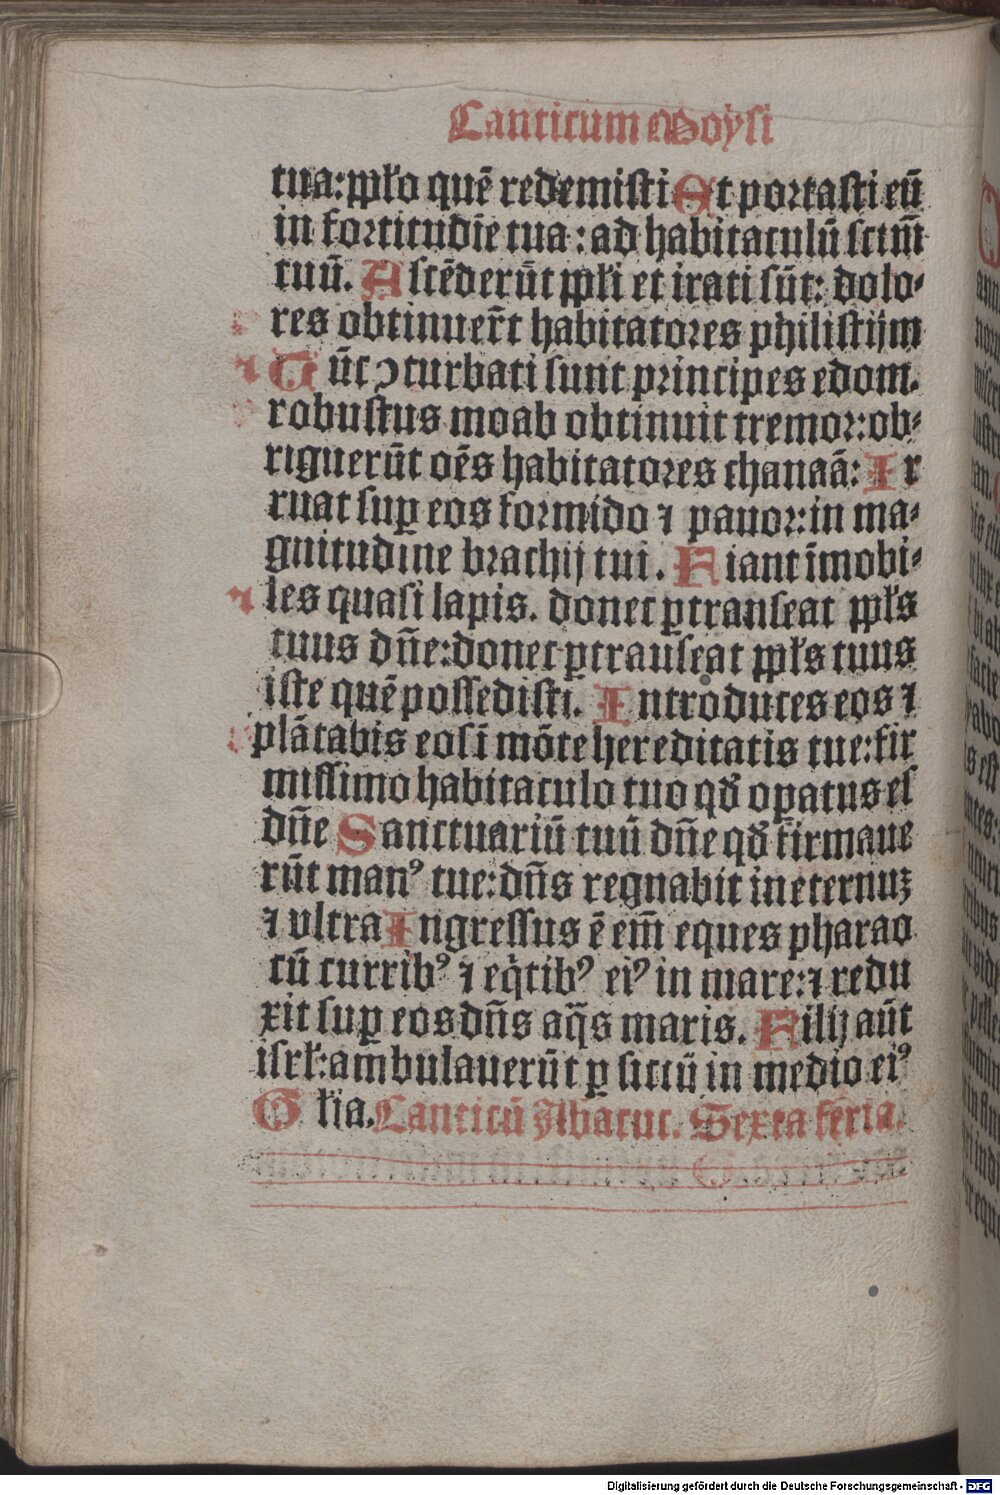 Canticum Moysi
tua: pp̄lo quē redemisti Et portasti eū
in fortitudīe tua : ad habitaculū sctm̄
tuū. Ascēderūt pp̄li et irati sūt: dolo⸗
res obtinuer̄t habitatores philistijm
Tūc ↄturbati sunt principes edom.
robustus moab obtinuit tremor: ob⸗
riguerūt oēs habitatores chanaā: Ir
ruat suꝑ eos formido ⁊ pauor: in ma⸗
gnitudine brachij tui. Fiant īmobi⸗
les quasi lapis. donec ꝑtranseat pp̄ls
tuus dn̄e: donec ꝑtranseat pp̄ls tuus
iste quē possedisti. Introduces eos ⁊
plātabis eos ī mōte hereditatis tue: fir
missimo habitaculo tuo qđ oꝑatus es
dn̄e Sanctuariū tuū dn̄e qđ firmaue
rūt manꝰ tue: dn̄s regnabit in eternuꝫ
⁊ vltra Ingressus ē em̄ eques pharao
cū curribꝰ ⁊ eq̄tibꝰ eiꝰ in mare: ⁊ redu
xit suꝑ eos dn̄s aq̄s maris. Filij aūt
isrl̄: ambulauerūt ꝑ siccū in medio eiꝰ
Gl̄ia. Canticū Abacuc. Sexta feria.
Digitalisierung gefördert durch die Deutsche Forschungsgemeinschaft - DFG